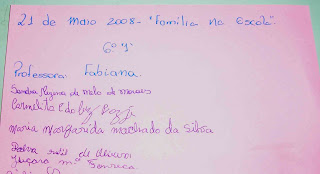 21 de Maio 2008 - "Família na escola".
6º 1
Professora: Fabiana.
Sandra Regina de Melo de Moraes
Carmelita
Maria Margarida Machado da Silva
de Oliveira
Juçara Mª Fonseca.